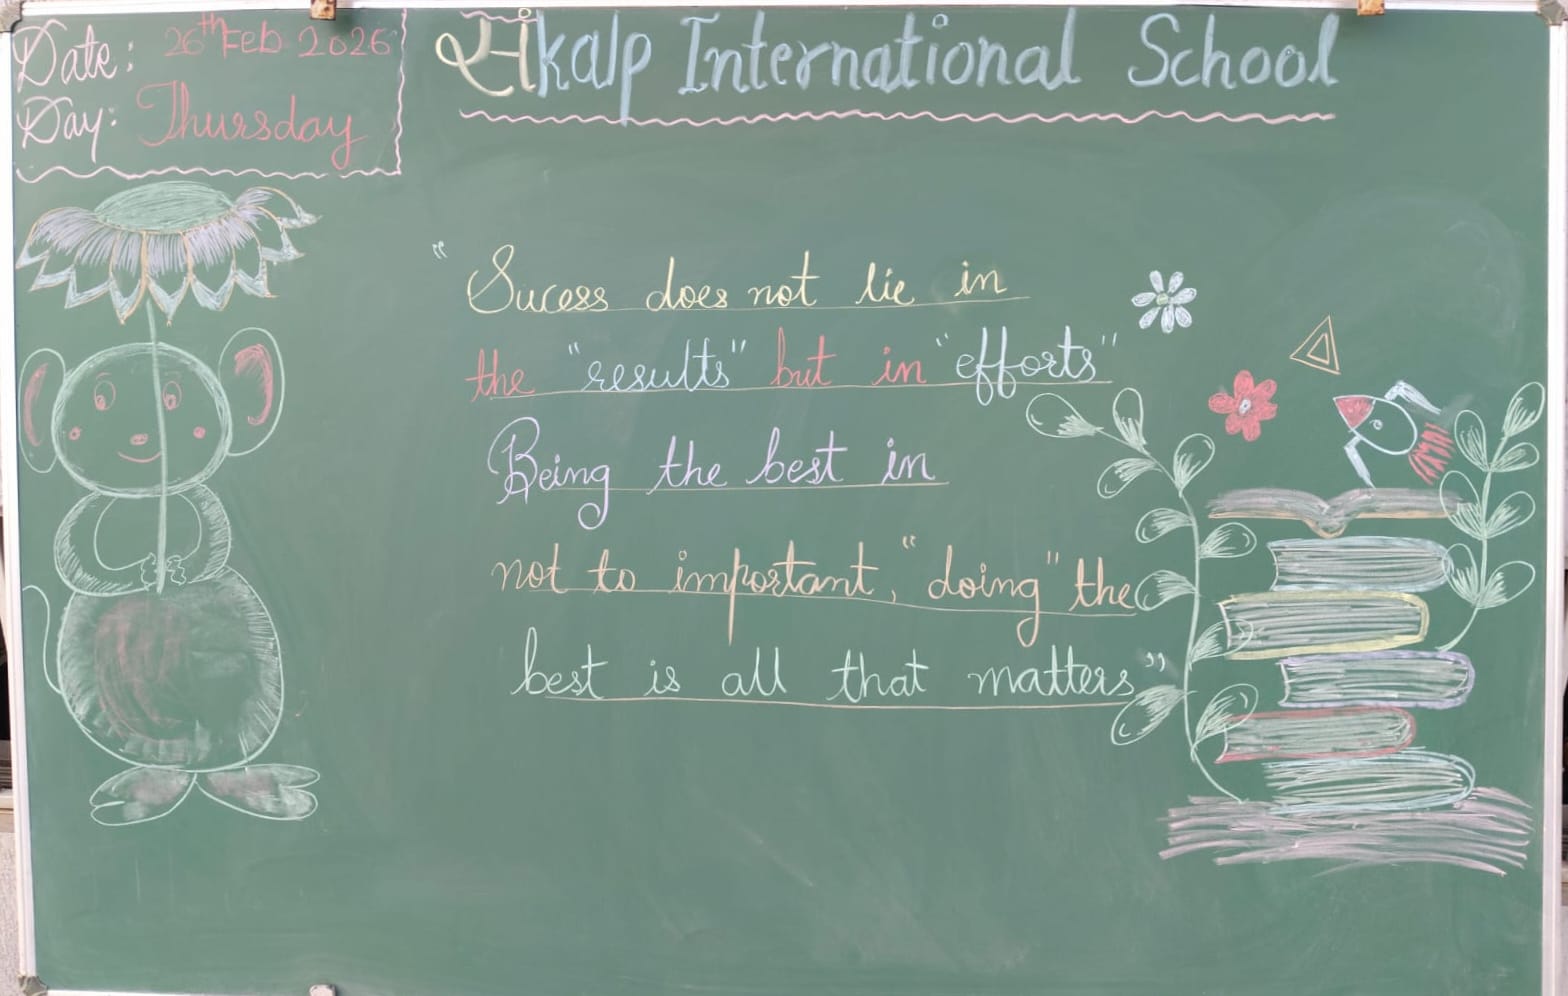 Date: 26th Feb 2026
Day: Thursday
संkalp International School
"Sucess does not lie in
the "results" but in "efforts"
Being the best in
not to important, "doing" the
best is all that matters"